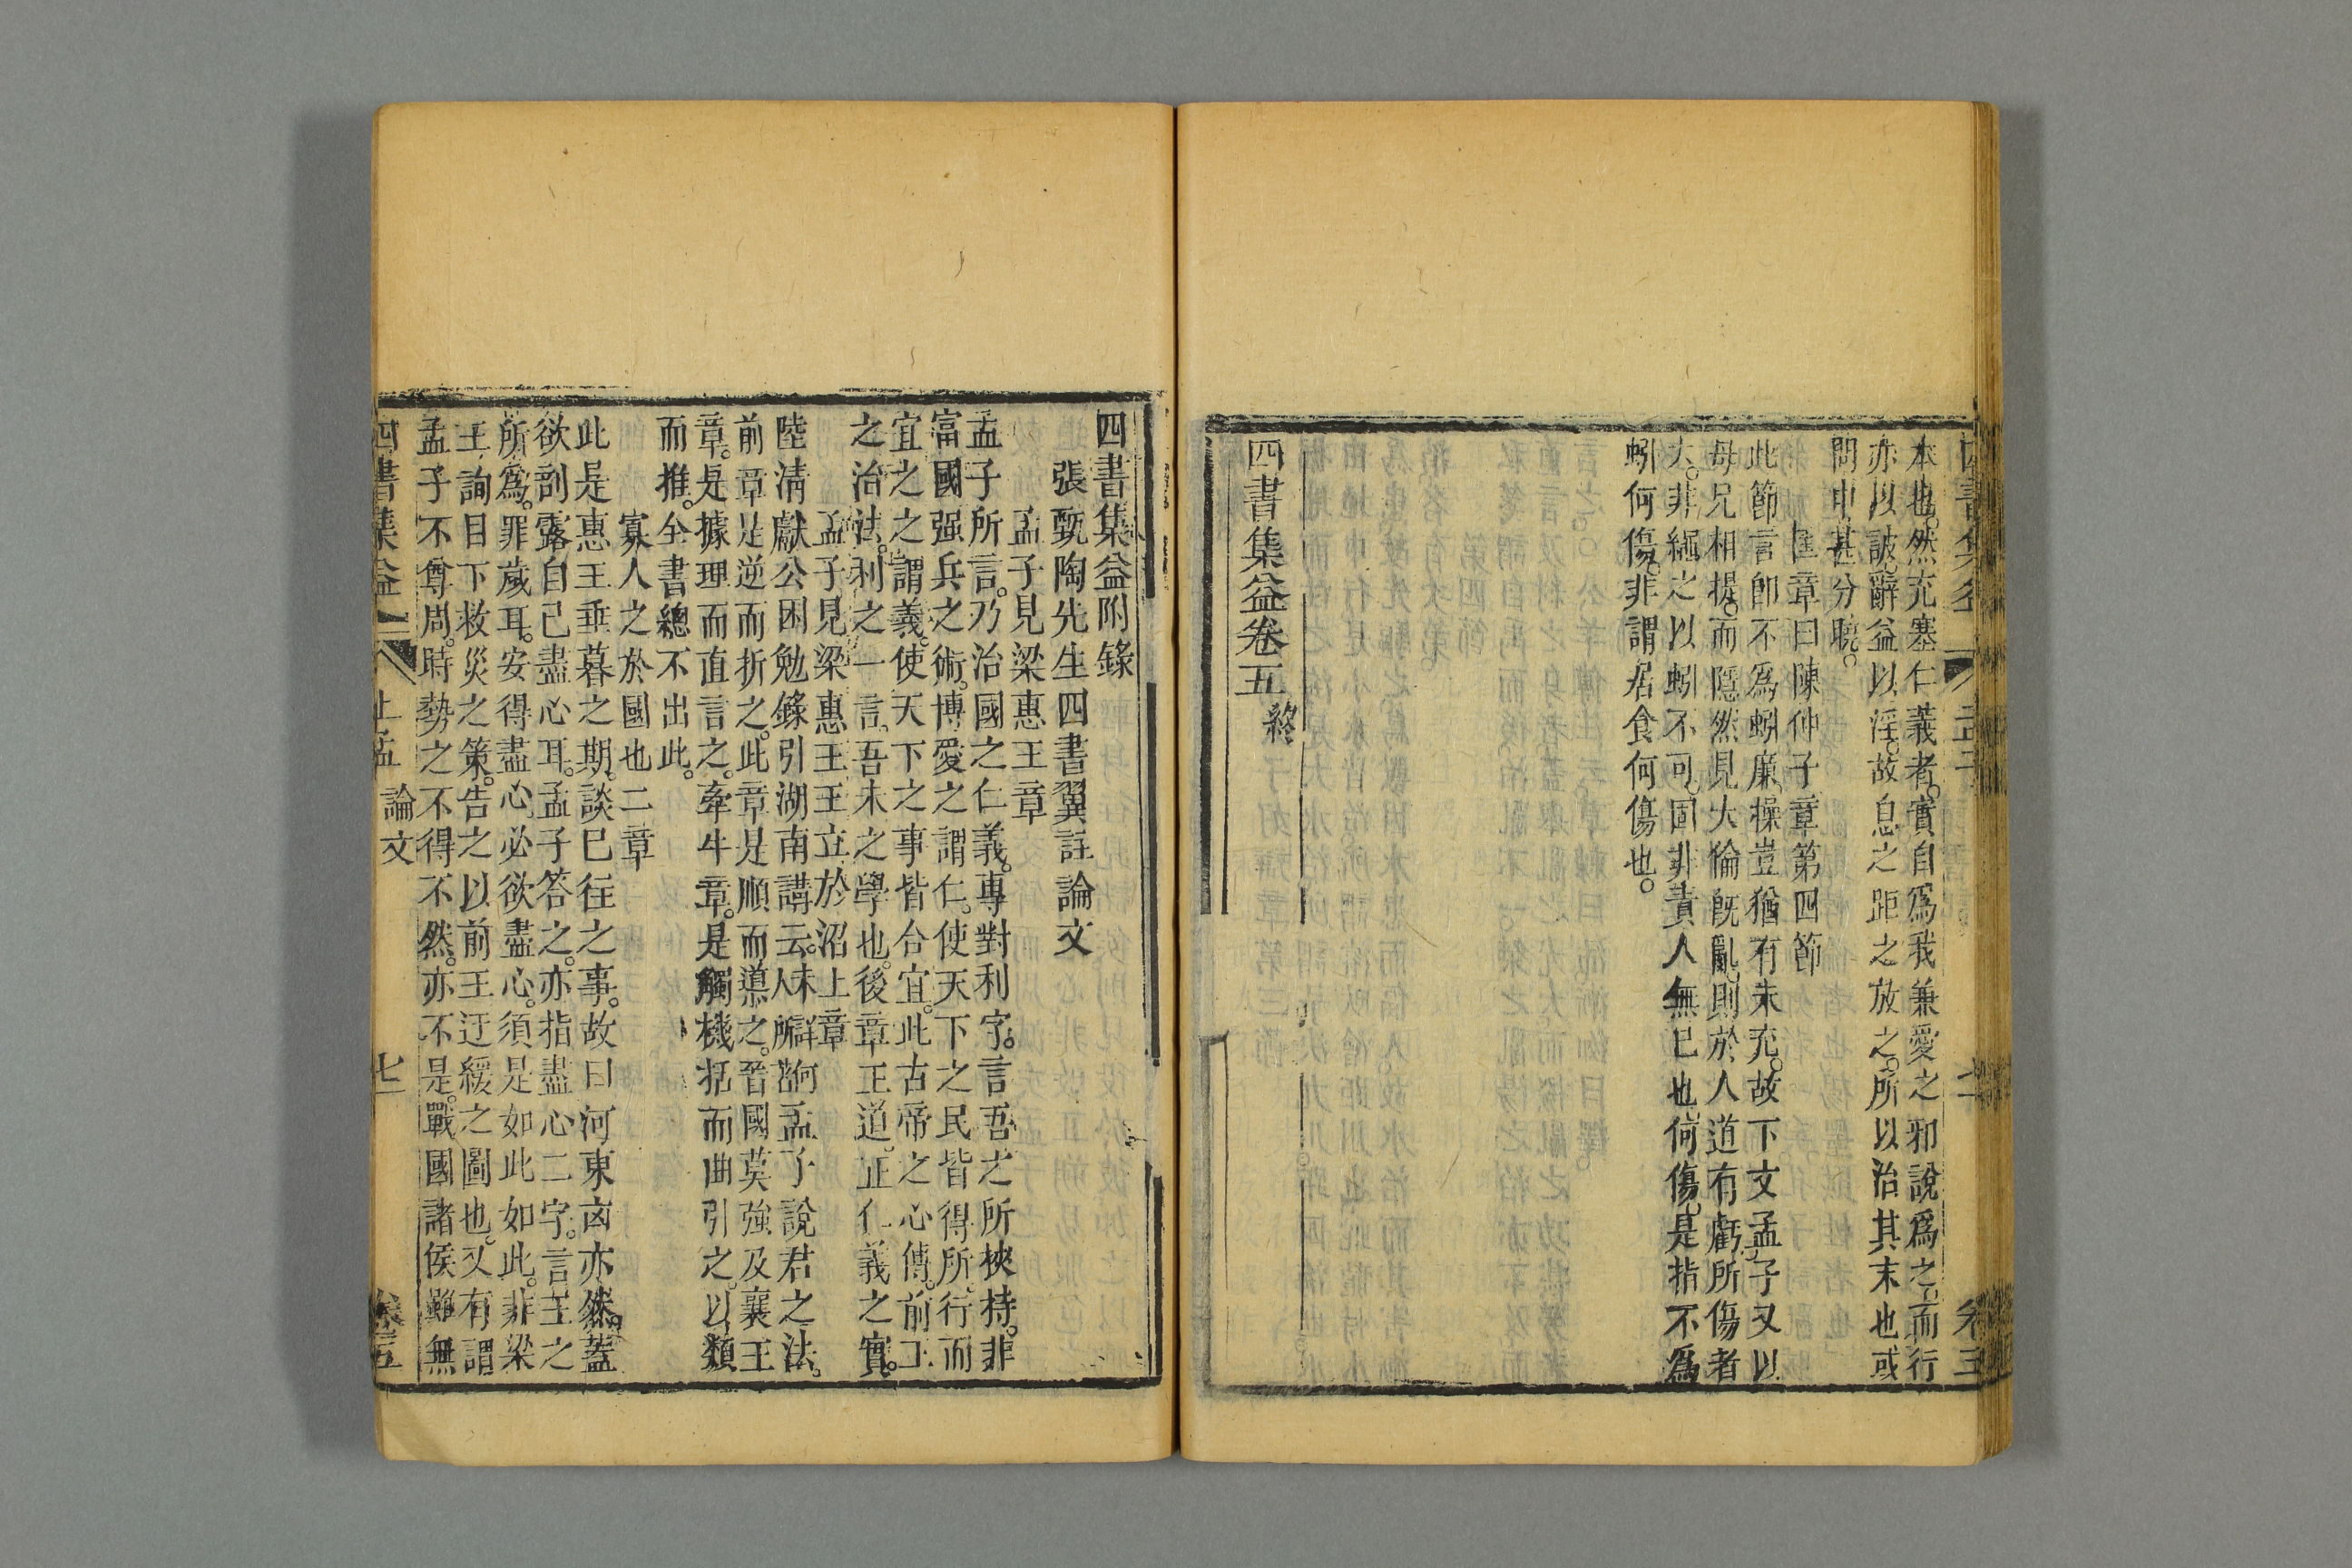 本也。然充塞仁義者。實自爲我兼愛之邪說爲之。而行
亦以詖辭。益以淫。故息之距之放之。所以治其末也。或
問中甚分曉。
匡章曰陳仲子章第四節
此節言卽不爲蚓廉。操豈猶有未充。故下文孟子又以
母兄相提。而隱然見大倫旣亂。則於人道有虧。所傷者
大。非繩之以蚓不可。固非責人無已也。何傷。是指不爲
蚓何傷。非謂居食何傷也。
四書集益卷五 終
四書集益附錄
張甄陶先生四書翼註論文
孟子見梁惠王章
孟子所言。乃治國之仁義。專對利字。言吾之所挾持。非
富國强兵之術。博愛之謂仁。使天下之民皆得所。行而
宜之之謂義。使天下之事皆合宜。此古帝之心傳。前王
之治法。利之一言。吾未之學也。後章王道。正仁義之實。
孟子見梁惠王王立於沼上章
陸清獻公困勉錄引湖南講云。未詳何人所著 孟子說君之法。
前章是逆而折之。此章是順而導之。晉國莫強及襄王
章。是據理而直言之。牽牛章。是觸機括而曲引之。以類
而推。全書總不出此。
寡人之於國也二章
此是惠王垂暮之期。談已往之事。故曰河東凶亦然。蓋
欲剖露自己盡心耳。孟子答之。亦指盡心二字。言王之
所爲。罪歲耳。安得盡心。必欲盡心。須是如此如此。非梁
王詢目下救災之策。告之以前王迂緩之圖也。又有謂
孟子不尊周。時勢之不得不然。亦不是。戰國諸侯雖無
四書集益 上孟 論文 七 卷五